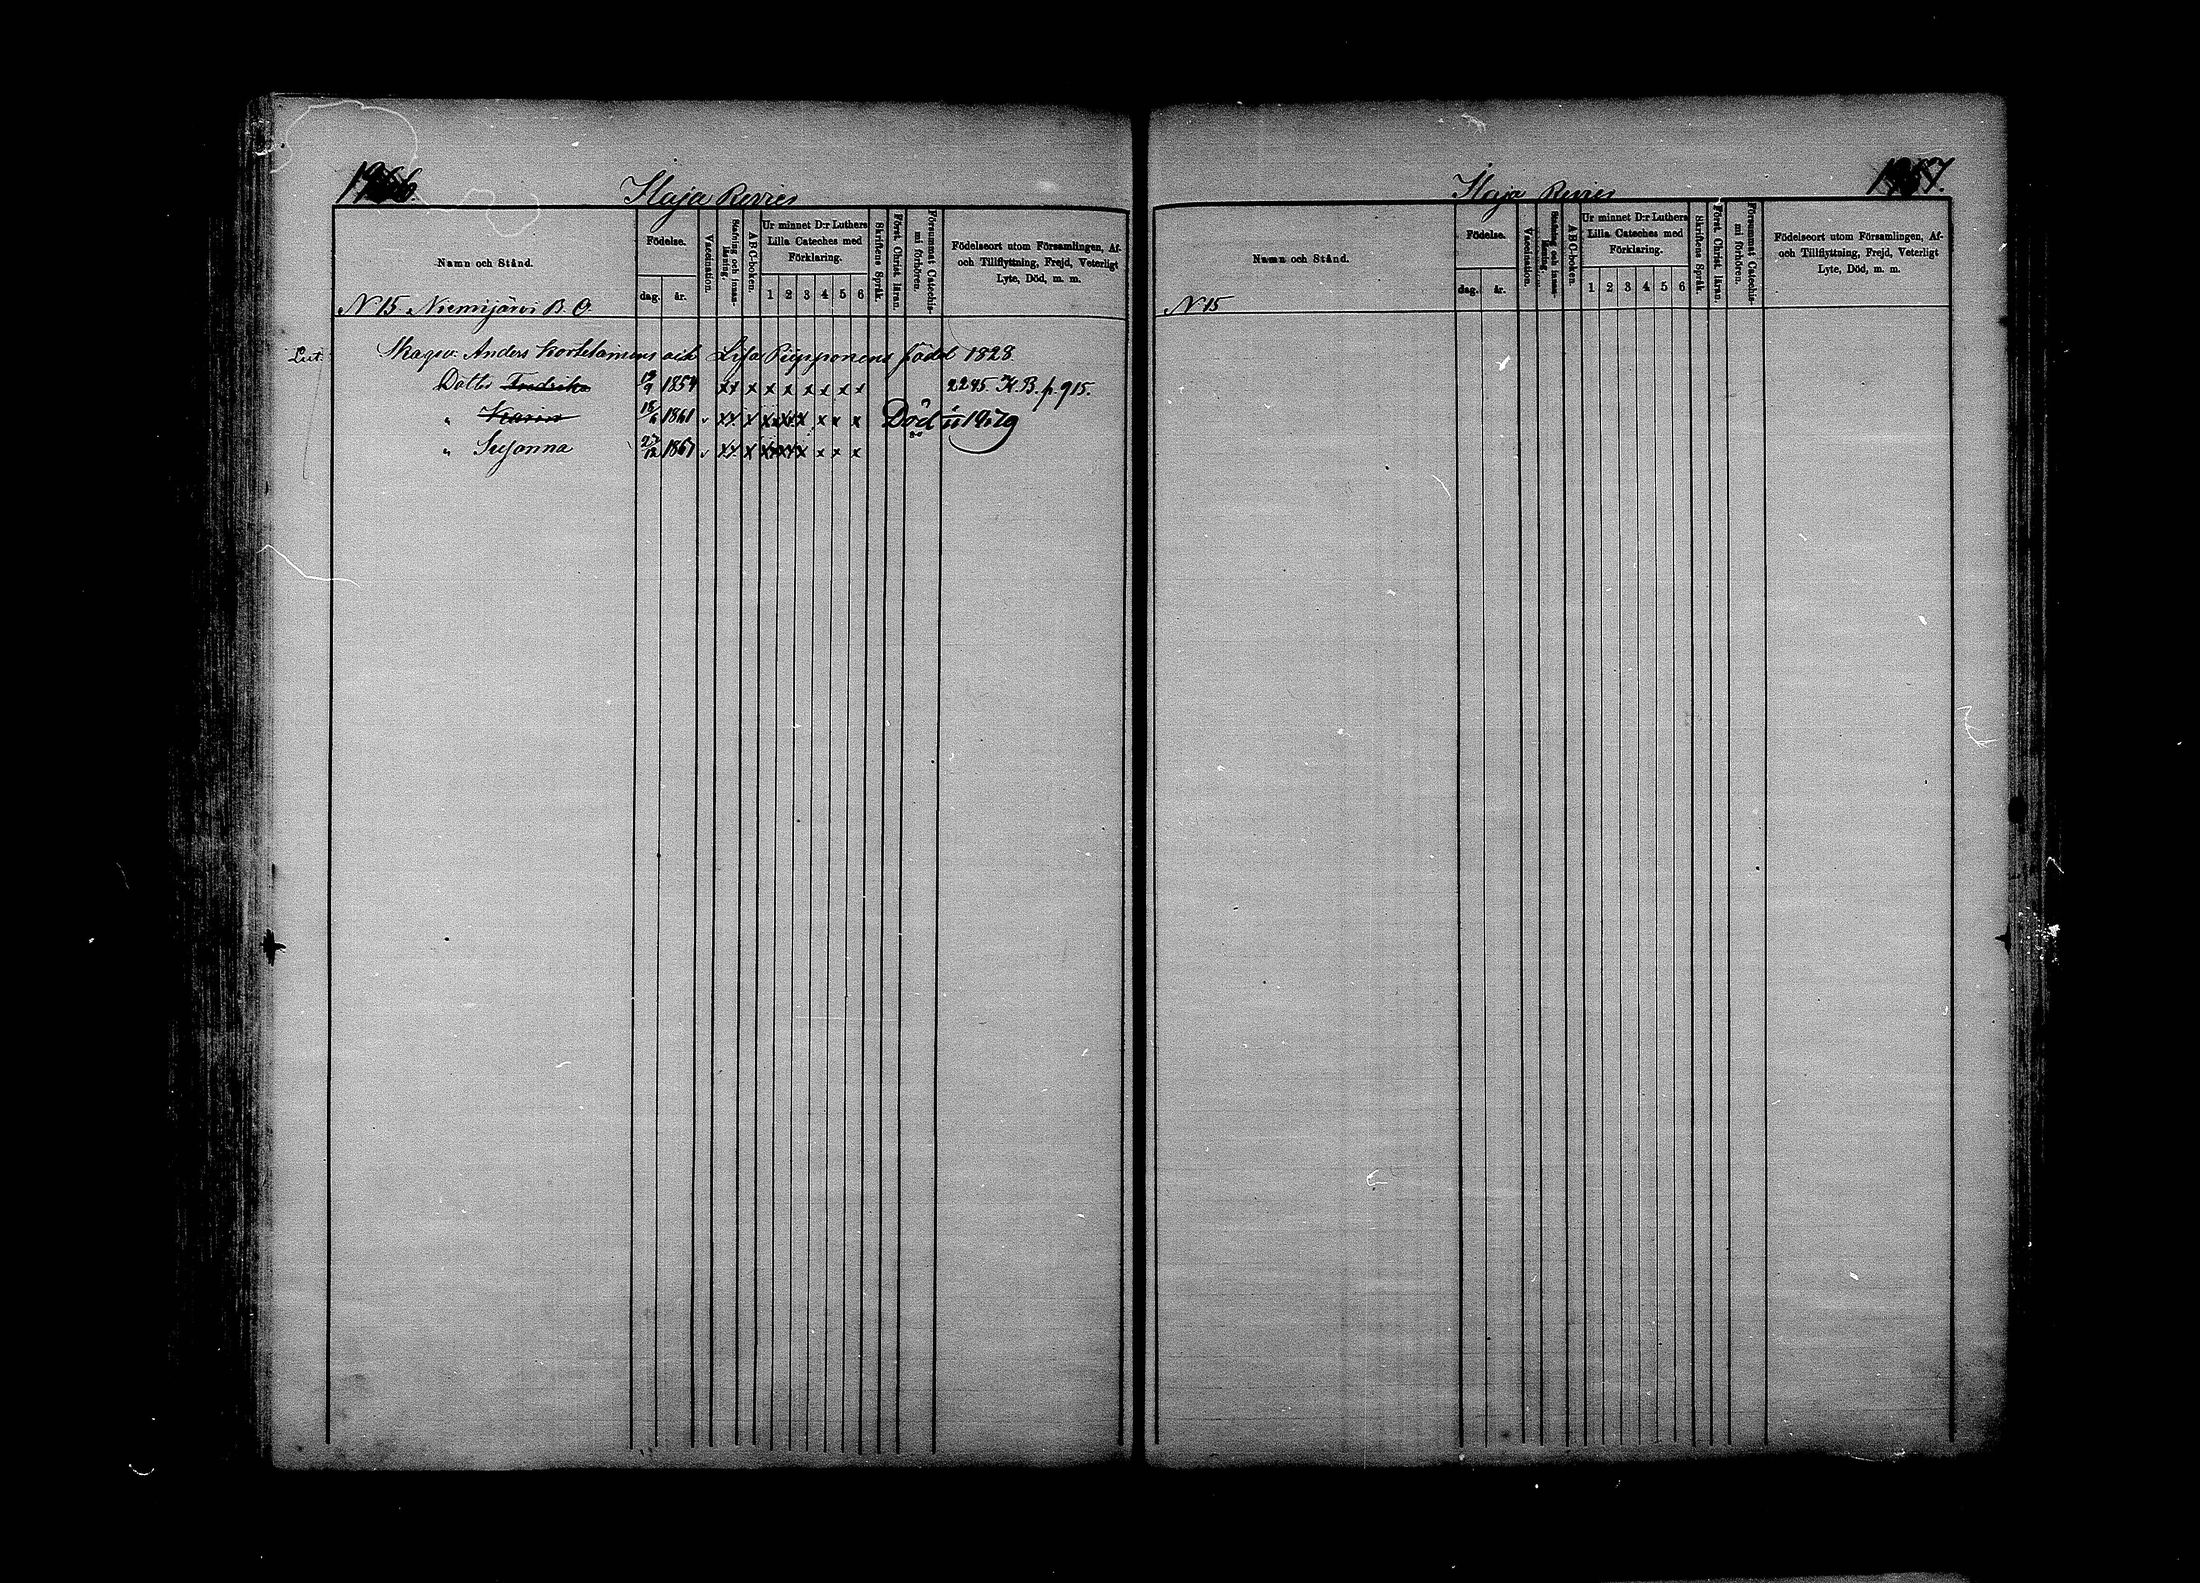 Ilaja Revier
Namn och Stånd.
Födelse.
dag. år.
Vaccination.
Stafning och innan-
läsning.
ABC-boken.
Ur minnet D:r Luthers
Lilla Cateches med
Förklaring.
1 2 3 4 5 6
Skriftens Språk.
Först. Christ. läran.
Försummat Catechis-
mi förhören.
Födelseort utom Församlingen, Af-
och Tillflyttning, Frejd, Veterligt
Lyte, Död, m. m.
N 15 Niemijärvi B. O.
Lut.
Anders Kortelainens och Lisa Piipponens född 1828
Dotter Fredrika 19/9 1854 x x x x x x x x x 2245 K.B. p. 915.
" Karin 18/6 1861 v x x x x x x x x x Död
" Susanna 27/12 1867 v x x x x x x x x x
Ilaja Revier
Namn och Stånd.
Födelse.
dag. år.
Vaccination.
Stafning och innan-
läsning.
ABC-boken.
Ur minnet D:r Luthers
Lilla Cateches med
Förklaring.
1 2 3 4 5 6
Skriftens Språk.
Först. Christ. läran.
Försummat Catechis-
mi förhören.
Födelseort utom Församlingen, Af-
och Tillflyttning, Frejd, Veterligt
Lyte, Död, m. m.
N 15